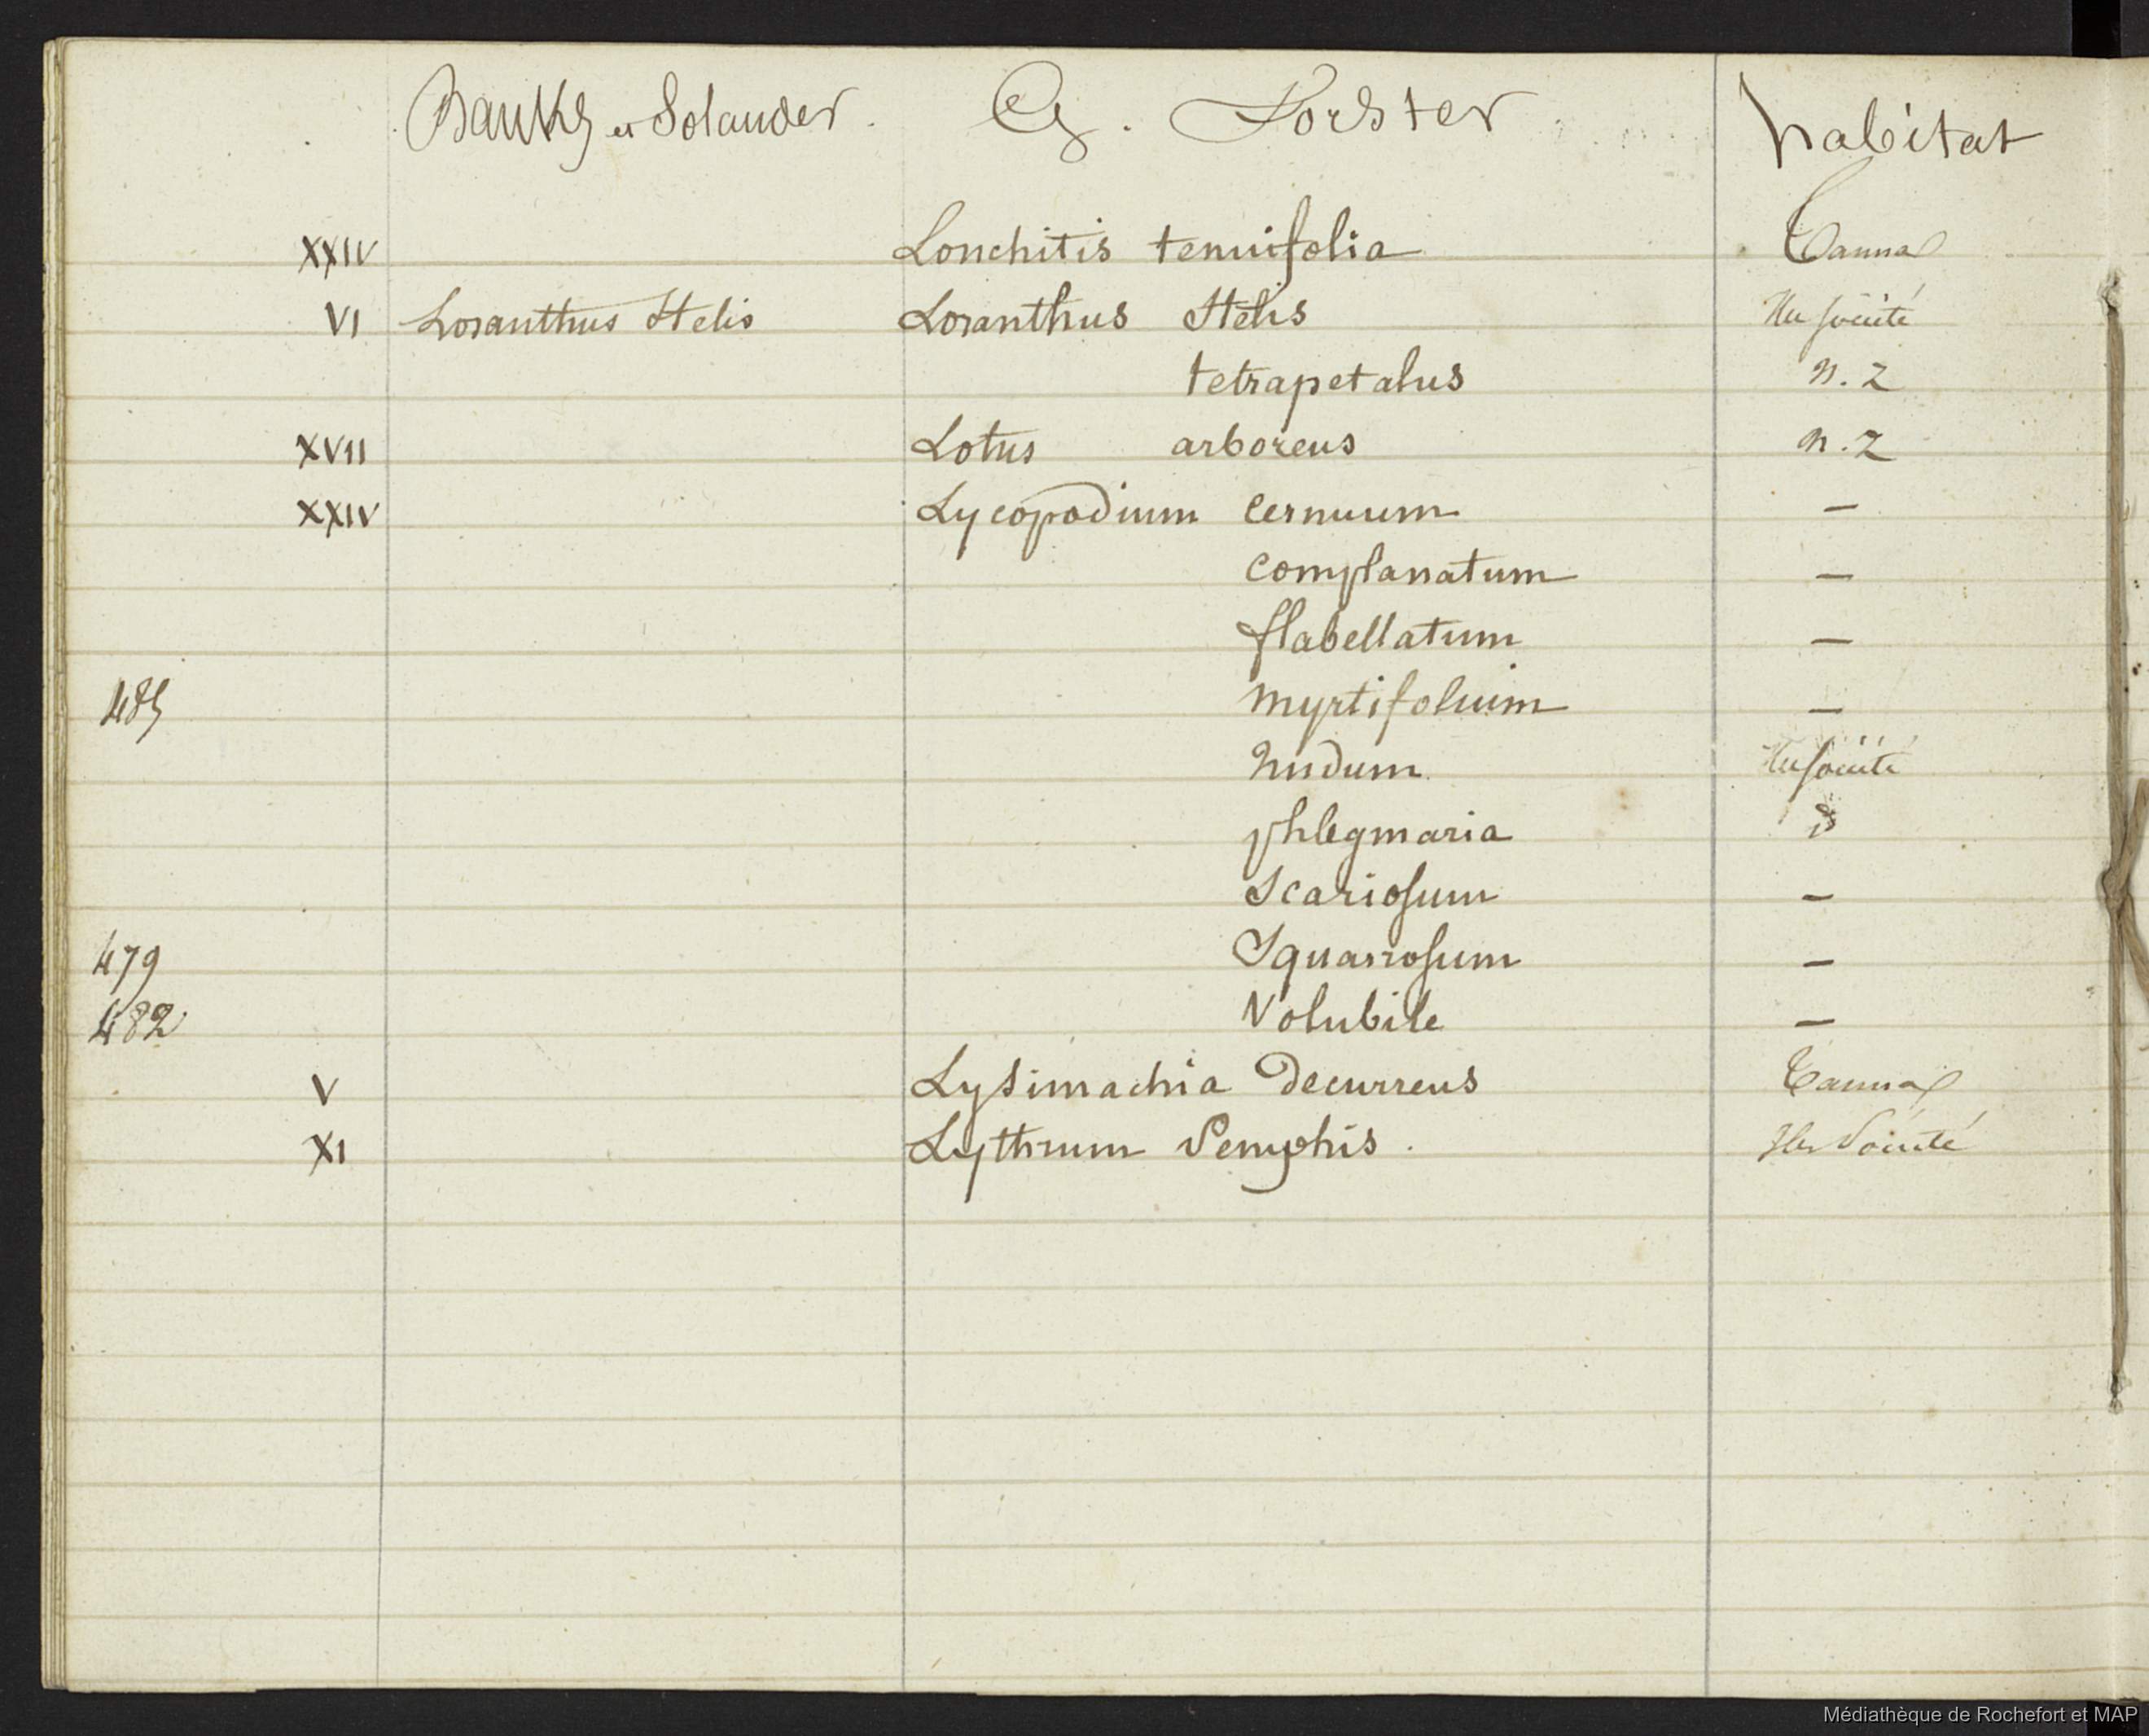 Banks et Solander. G. Forster habitat
XXIV Lonchitis tenuifolia Tanna
VI Loranthus Stelis Loranthus Stelis Iles Société
tetrapetalus n. Z
XVII Lotus arboreus n. Z
XXIV Lycopodium cernuum —
complanatum —
flabellatum —
485 myrtifolium —
nudum Iles Société
phlegmaria d
Scariosum —
479 Squarrosum —
482 Volubile —
V Lysimachia decurrens Tanna
XI Lythrum Pemphis. Iles Société
Médiathèque de Rochefort et MAP